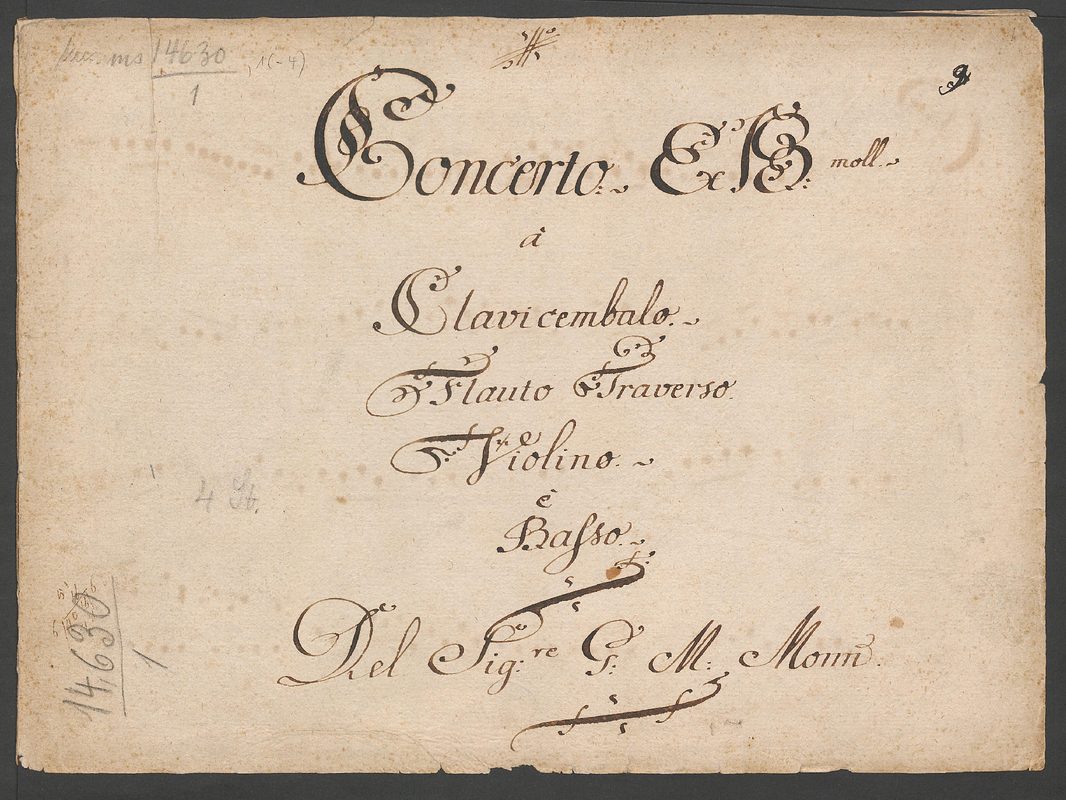 ms 14630, 1(-4)
1
2
Concerto. Ex B: moll.
â
Clavicembalo.
Flauto Traverso.
Violino.
è
Basso.
4 St.
Del Sig:re G: M: Monn.
14630
1